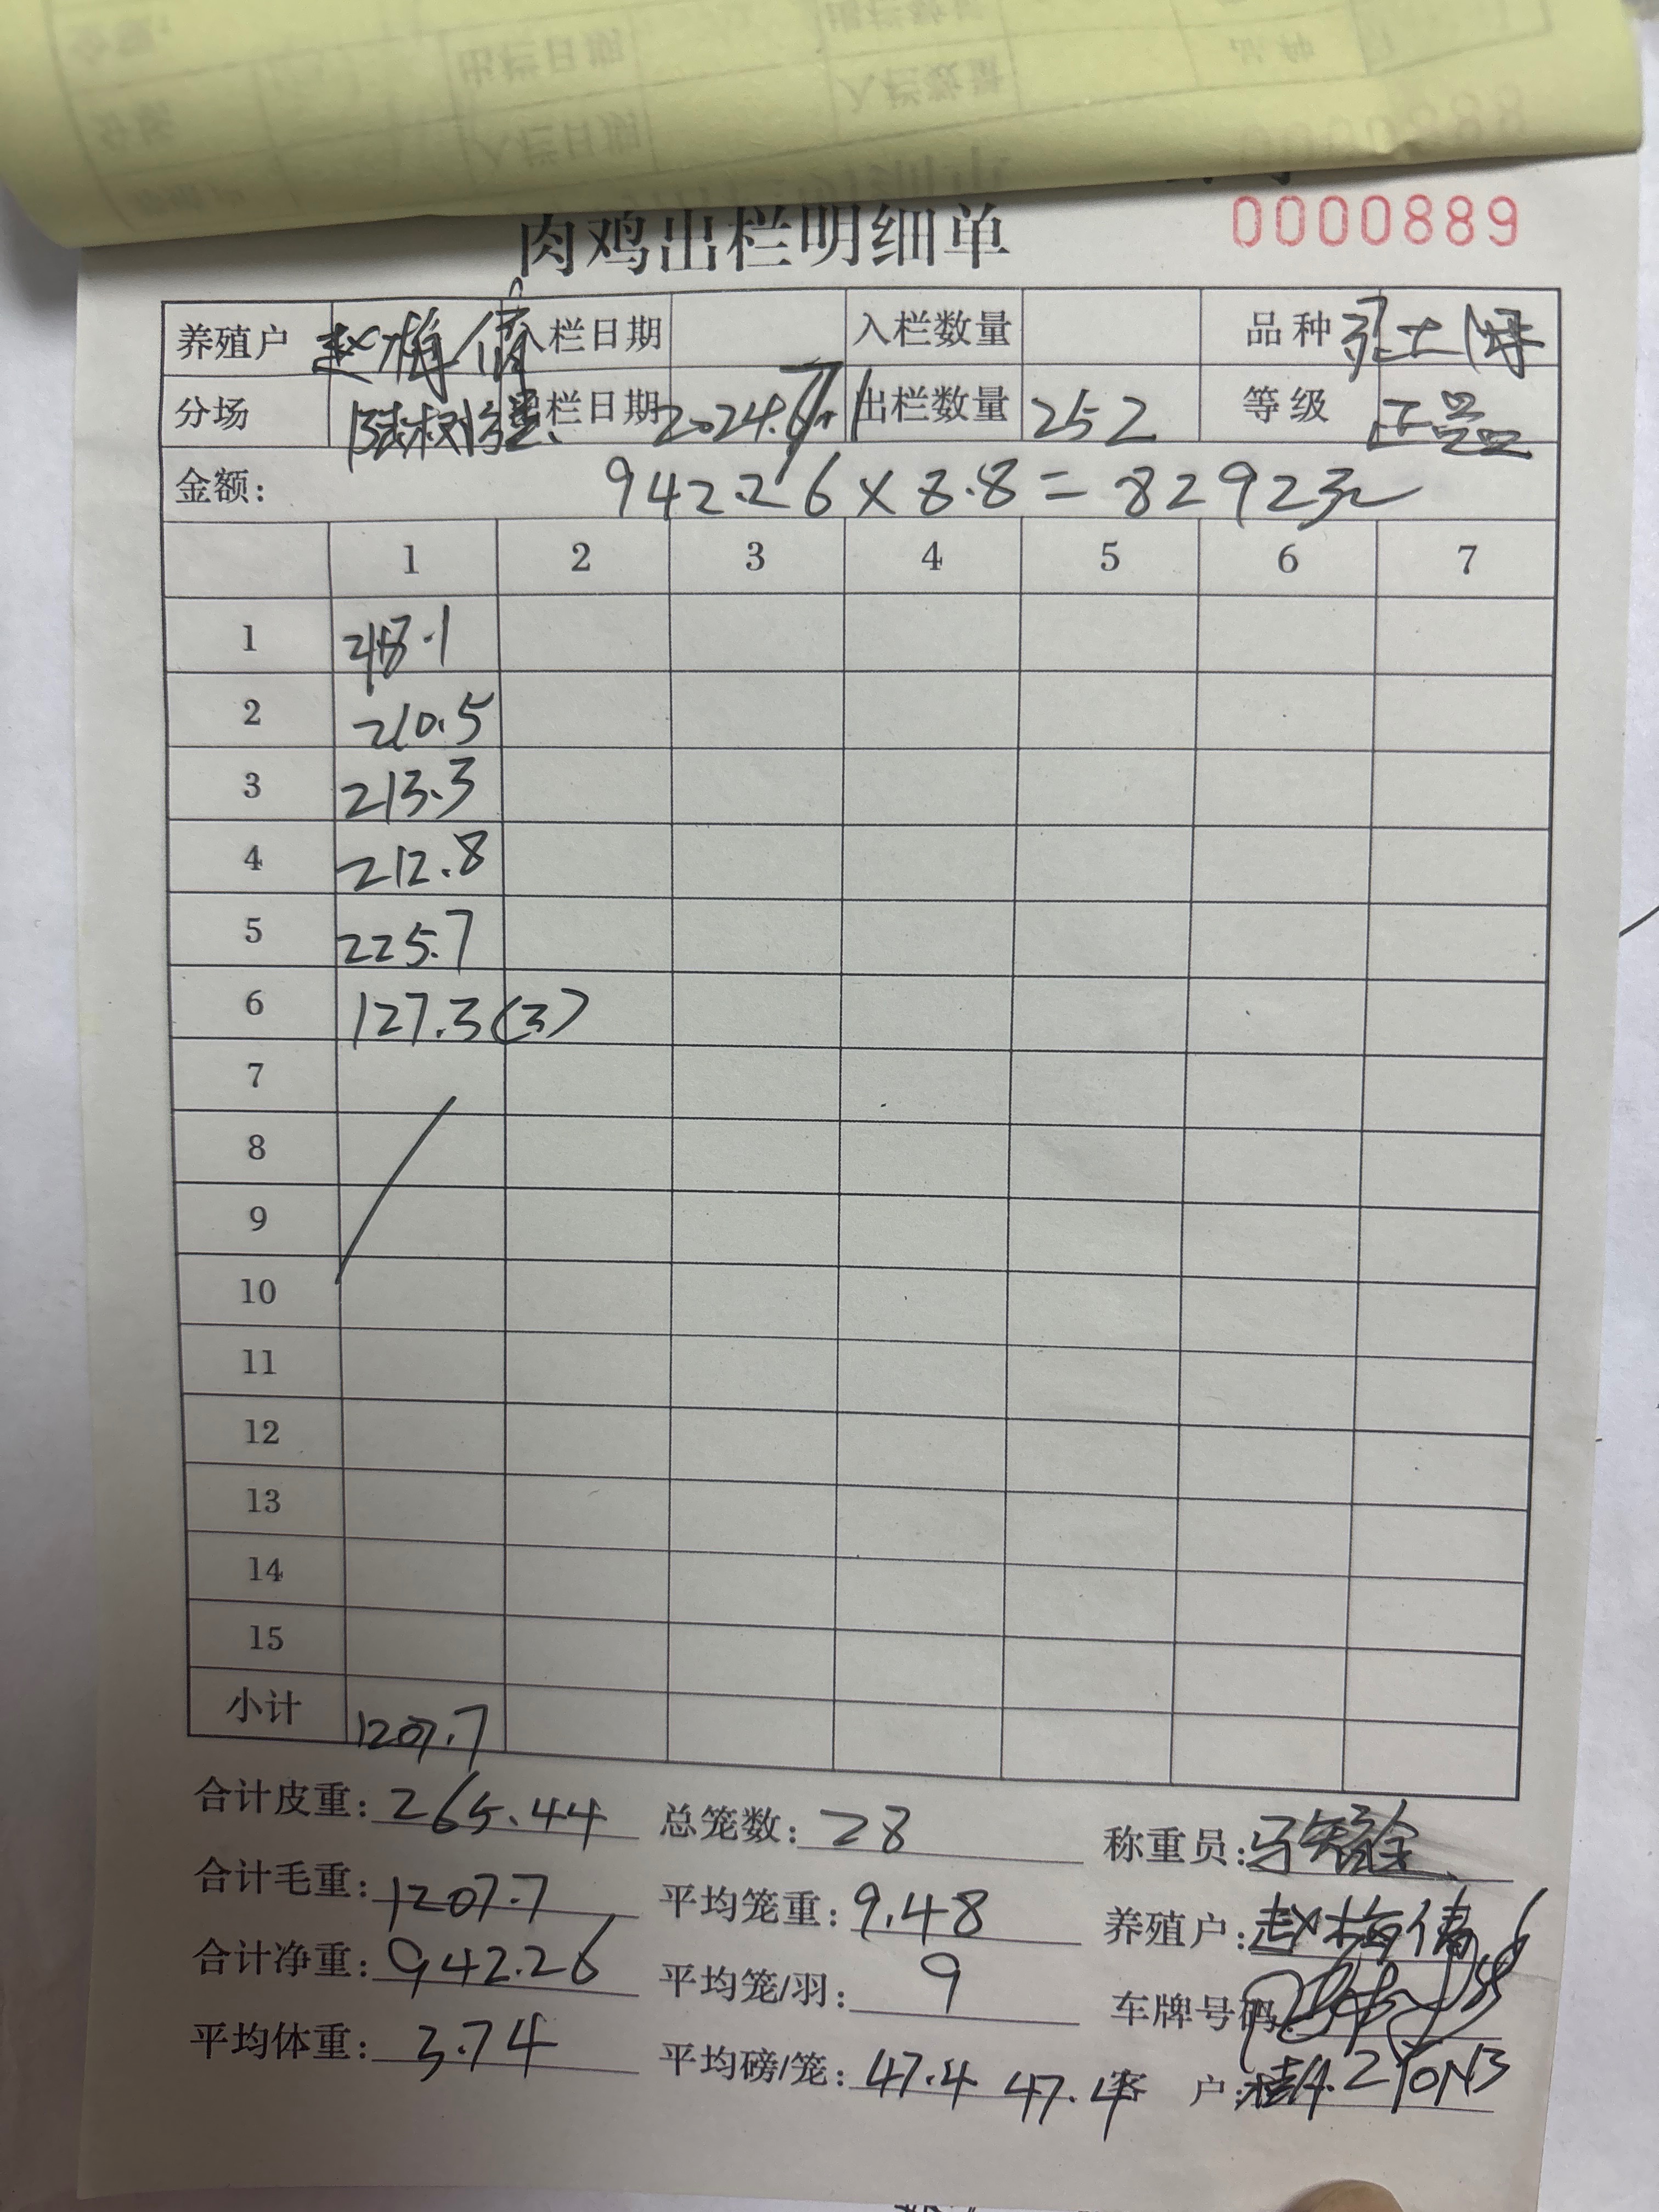 肉鸡出栏明细单
0000889
养殖户 赵梅倩 入栏日期 入栏数量 品种
分场 出栏日期 2024. 出栏数量 252 等级 正品
金额： 942.26×8.8=8292元
1 2 3 4 5 6 7
1 218.1
2 210.5
3 213.3
4 212.8
5 225.7
6 127.3(3)
7
8
9
10
11
12
13
14
15
小计 1207.7
合计皮重：265.44 总笼数：28 称重员：
合计毛重：1207.7 平均笼重：9.48 养殖户：赵梅倩
合计净重：942.26 平均笼/羽：9 车牌号码：
平均体重：3.74 平均磅/笼：47.4 47.4 客 户：桂A.2Y0N3